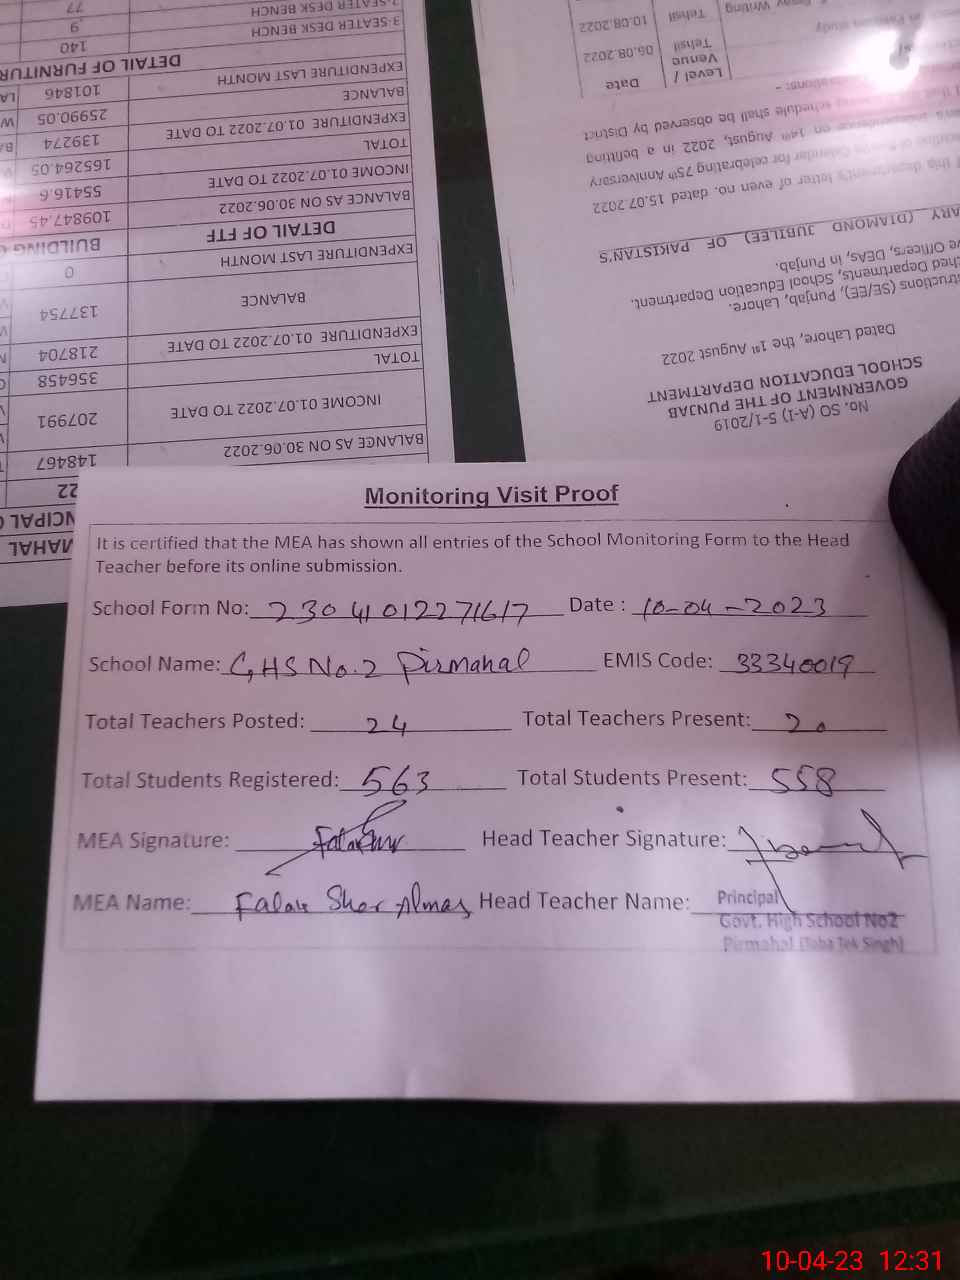 Monitoring Visit Proof
It is certified that the MEA has shown all entries of the School Monitoring Form to the Head
Teacher before its online submission.
School Form No: 23041012271617 Date : 10-04-2023
School Name: GHS No.2 Pirmahal EMIS Code: 33340019
Total Teachers Posted: 24 Total Teachers Present: 20
Total Students Registered: 563 Total Students Present: 558
MEA Signature: Head Teacher Signature:
MEA Name: Falak Sher Almas Head Teacher Name: Principal
Govt. High School No2
Pirmahal (Toba Tek Singh)
10-04-23 12:31
MAHAL
NCIPAL
22
BALANCE AS ON 30.06.2022 148467
INCOME 01.07.2022 TO DATE 207991
TOTAL 356458
EXPENDITURE 01.07.2022 TO DATE 218704
BALANCE 137754
EXPENDITURE LAST MONTH 0
DETAIL OF FTF BUILDING
BALANCE AS ON 30.06.2022 109847.45
INCOME 01.07.2022 TO DATE 55416.6
TOTAL 165264.05
EXPENDITURE 01.07.2022 TO DATE 139274
BALANCE 25990.05
EXPENDITURE LAST MONTH 101846
DETAIL OF FURNITUR
3-SEATER DESK BENCH 140
2-SEATER DESK BENCH 9
77
No. SO (A-I) 5-1/2019
GOVERNMENT OF THE PUNJAB
SCHOOL EDUCATION DEPARTMENT
Dated Lahore, the 1st August 2022
structions (SE/EE), Punjab, Lahore.
ched Departments, School Education Department.
ve Officers, DEAs, in Punjab.
ARY (DIAMOND JUBILEE) OF PAKISTAN'S
this department's letter of even no. dated 15.07.2022
Calendar for celebrating 75th Anniversary
on 14th August, 2022 in a befitting
schedule shall be observed by District
Level / Venue Date
Tehsil 05.08.2022
Tehsil 10.08.2022
study
Essay Writing